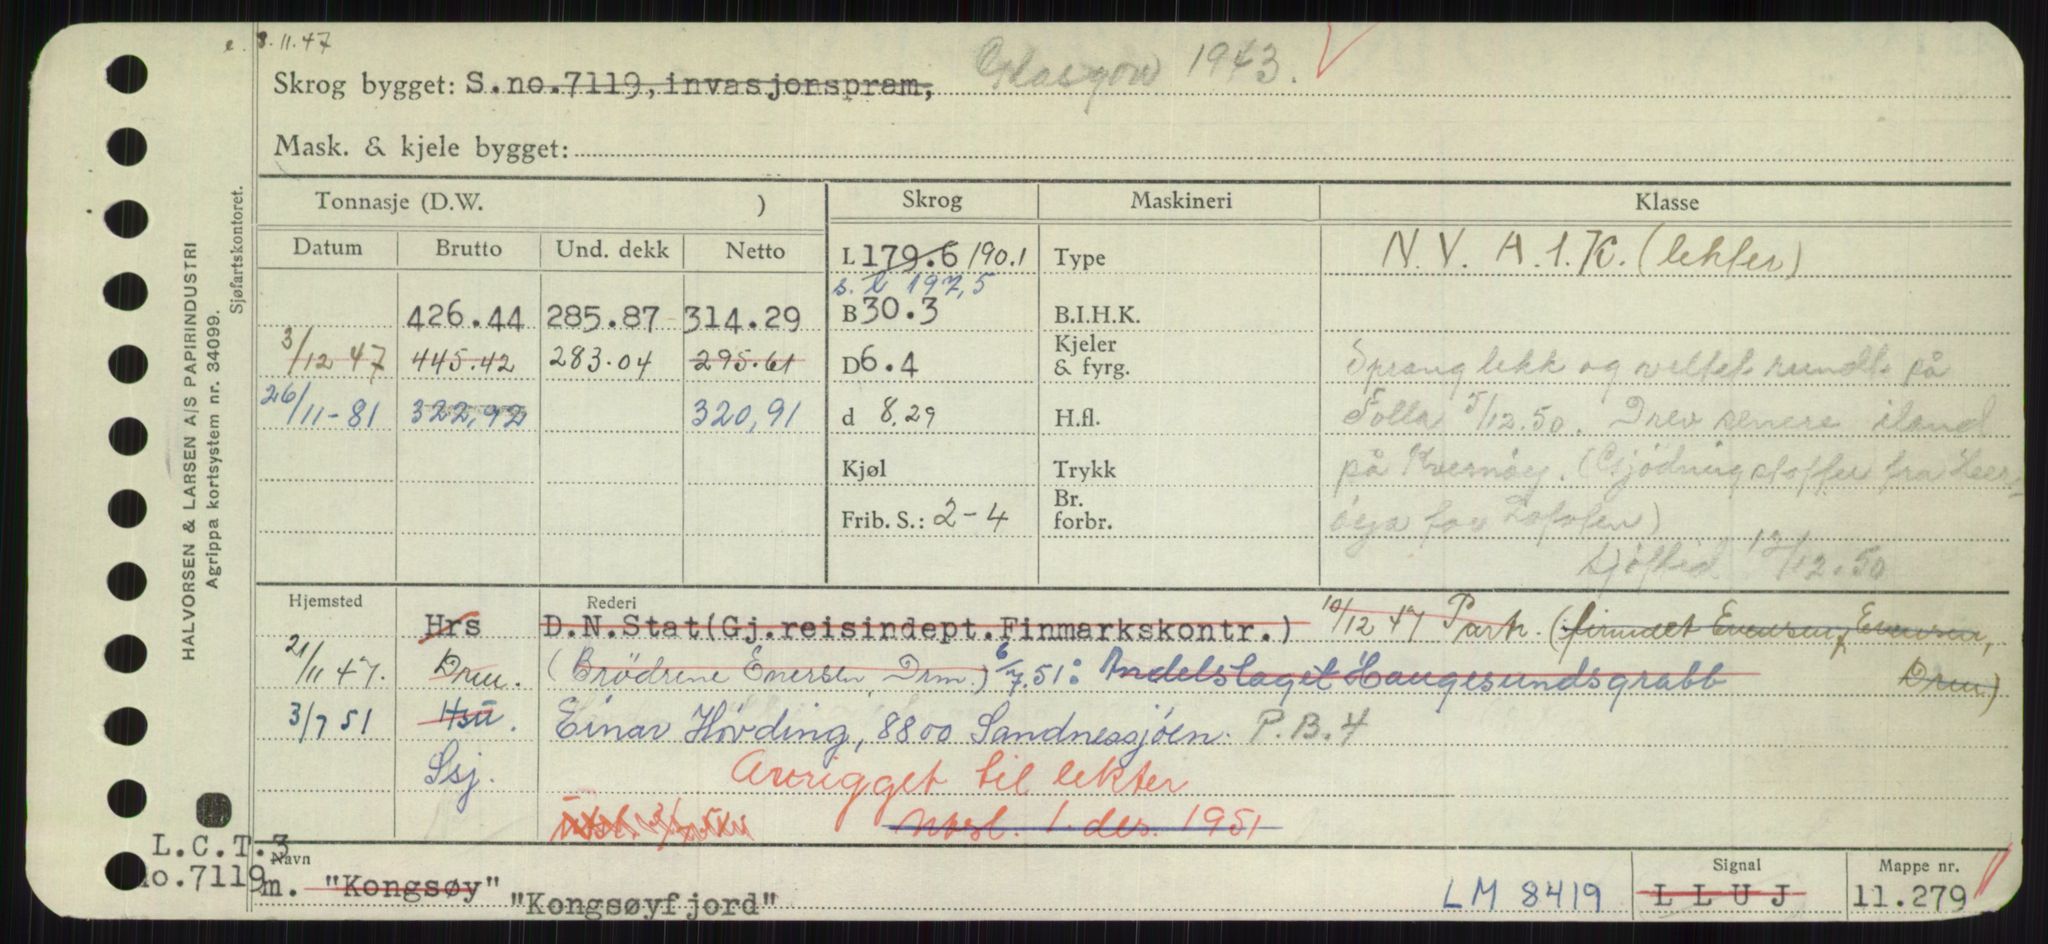 e. 8.11.47
Skrog bygget: S.no.7119, invasjonspram, Glasgow 1943.
Mask. & kjele bygget:
HALVORSEN & LARSEN A/S PAPIRINDUSTRI
Agrippa kortsystem nr. 34099.
Sjøfartskontoret.
Tonnasje (D.W. ) Skrog Maskineri Klasse
Datum Brutto Und. dekk Netto
L 179.6 190.1 Type N.V. A.1.K. (lekter)
s.l 197,5
426.44 285.87 314.29 B 30.3 B.I.H.K.
3/12 47 445.42 283.04 295.61 D 6.4 Kjeler & fyrg. Sprang lekk og veltet rundt på
26/11-81 322,92 320,91 d 8.29 H.fl. Folla 5/12.50. Drev senere iland
Kjøl Trykk på Kvernøy. (Gjødningstoffer fra Heer-
Frib. S.: 2-4 Br. forbr. øya for Lofoten)
Sjøftid. 12/12.50
Hjemsted Rederi
Hrs D.N.Stat(Gj.reisindept.Finmarkskontr.) 10/12 47 Partr. (firmaet Evensen, Evensen,
21/11 47. Drm. (Brödrene Enersen, Drm.) 6/7.51: Andelslaget Haugesundsgrabb Drm)
3/7 51 Hsu. Einar Høvding, 8800 Sandnessjøen. P.B.4
Ssj. Avrigget til lekter
Novsl. 1. des. 1951
L.C.T.3
no.7119
Navn Signal Mappe nr.
m. "Kongsøy" "Kongsøyfjord" LM 8419 L L U J 11.279